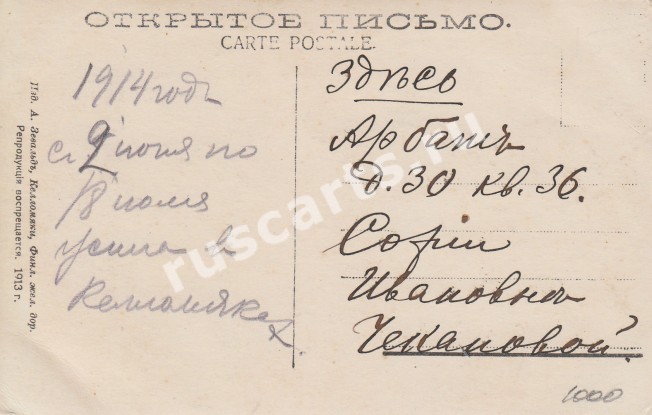 ОТКРЫТОЕ ПИСЬМО.
CARTE POSTALE.
Изд. А. Зевальдъ, Келломяки, Финл. жел. дор.
Репродукція воспрещается. 1913 г.
1914 годъ
съ 2 іюня по
18 іюля
в
Келломяках
Здѣсь
Арбатъ
д. 30 кв. 36.
Софіи
Ивановнѣ
Чекановой.
1000
ruscarts.ru